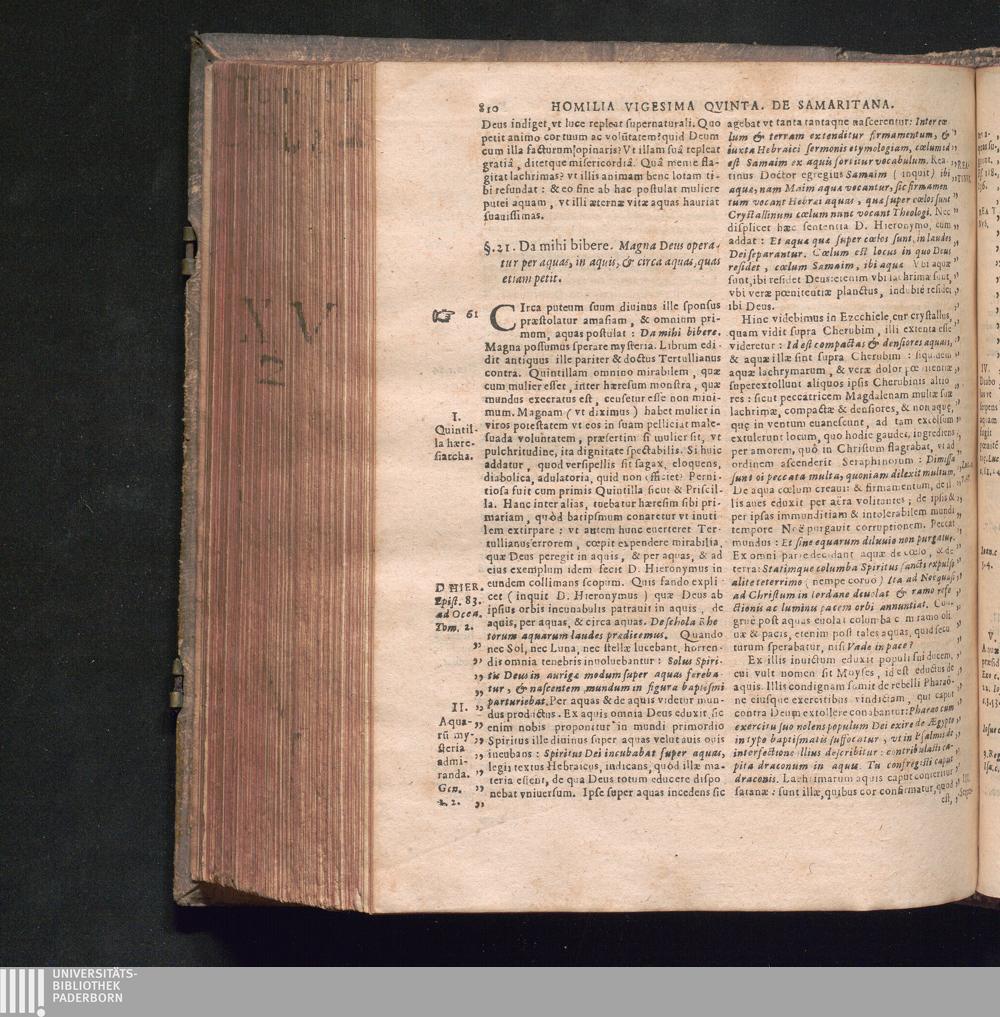 810 HOMILIA VIGESIMA QVINTA. DE SAMARITANA.
Deus indiget, vt luce repleat supernaturali. Quo
petit animo cor tuum ac volũtatem? quid Deum
cum illa facturum opinaris? Vt illam suâ repleat
gratiâ, ditetque misericordiâ. Quâ mente fla-
gitat lachrimas? vt illis animam bene lotam ti-
bi refundat : & eo fine ab hac postulat muliere
putei aquam, vt illi æternæ vitæ aquas hauriat
suauissimas.
§. 21. Da mihi bibere. Magna Deus opera-
tur per aquas, in aquis, & circa aquas, quas
etiam petit.
61 CIrca puteum suum diuinus ille sponsus
præstolatur amasiam, & omnium pri-
mum, aquas postulat : Da mihi bibere.
Magna possumus sperare mysteria. Librum edi-
dit antiquus ille pariter & doctus Tertullianus
contra. Quintillam omnino mirabilem, quæ
cum mulier esset, inter hæresum monstra, quæ
mundus execratus est, censetur esse non mini-
mum. Magnam (vt diximus) habet mulier in
viros potestatem vt eos in suam pelliciat male-
suada voluntatem, præsertim si mulier sit, vt
pulchritudine, ita dignitate spectabilis. Si huic
addatur, quod versipellis sit sagax, eloquens,
diabolica, adulatoria, quid non efficiet? Perni-
tiosa fuit cum primis Quintilla sicut & Priscil-
la. Hanc inter alias, tuebatur hæresim sibi pri-
mariam, quòd baptismum conaretur vt inuti
lem extirpare : vt autem hunc euerteret Ter-
tullianus errorem, cœpit expendere mirabilia,
quæ Deus peregit in aquis, & per aquas, & ad
eius exemplum idem fecit D. Hieronymus in
eundem collimans scopum. Quis fando expli-
cet (inquit D. Hieronymus) quæ Deus ab
ipsius orbis incunabulis patrauit in aquis, de
aquis, per aquas, & circa aquas. De schola rhe
torum aquarum laudes prædicemus. Quando
nec Sol, nec Luna, nec stellæ lucebant, horren-
dis omnia tenebris inuoluebantur : Solus Spiri-
tus Deus in aurigæ modum super aquas fereba-
tur, & nascentem mundum in figura baptismi
parturiebat. Per aquas & de aquis videtur mun-
dus productus. Ex aquis omnia Deus eduxit, sic
enim nobis proponitur in mundi primordio
Spiritus ille diuinus super aquas velut auis ouis
incubans : Spiritus Dei incubabat super aquas,
legit textus Hebraicus, indicans, quòd illæ ma-
teria essent, de qua Deus totum educere dispo
nebat vniuersum. Ipse super aquas incedens sic
I.
Quintil-
la hære-
siarcha.
D HIER.
Epist. 83.
ad Ocea.
Tom. 2.
II.
Aqua-
rū my-
steria
admi-
randa.
Gen.
1. 2.
agebat vt tanta tantaque nascerentur: Inter cœ
lum & terram extenditur firmamentum, &
iuxta Hebraici sermonis etymologiam, cœlum id
est Samaim ex aquis sortitur vocabulum. Rea-
tinus Doctor egregius Samaim (inquit) ibi
aquæ, nam Maim aqua vocantur, sic firmamen
tum vocant Hebræi aquas, quæ super cœlos sunt
Crystallinum cœlum nunc vocant Theologi. Nec
displicet hæc sententia D. Hieronymo, cum
addat : Et aquæ quæ super cœlos sunt, in laudes
Dei separantur. Cœlum est locus in quo Deus
residet, cœlum Samaim, ibi aqua Vbi aquæ
sunt, ibi residet Deus: etenim vbi lachrimæ sunt,
vbi veræ pœnitentiæ planctus, indubiè residet
ibi Deus.
Hinc videbimus in Ezechiele, cur crystallus,
quam vidit supra Cherubim, illi extenta esse
videretur : Id est compactas & densiores aquas,
& aquæ illæ sint supra Cherubim : siquidem
aquæ lachrymarum, & veræ dolor pœnitentiæ
superextollunt aliquos ipsis Cherubinis altio
res : sicut peccatricem Magdalenam multæ suæ
lachrimæ, compactæ & densiores, & non aquę,
quę in ventum euanescunt, ad tam excelsum
extulerunt locum, quo hodie gaudet, ingrediens
per amorem, quô in Christum flagrabat, vt ad
ordinem ascenderit Seraphinorum : Dimissa
sunt ei peccata multa, quoniam dilexit multum.
De aqua cœlum creauit & firmamentum, de il
lis aues eduxit per aëra volitantes ; de ipsis &
per ipsas immunditiam & intolerabilem mundi
tempore Noë purgauit corruptionem. Peccat
mundus : Et sine aquarum diluuio non purgatur.
Ex omni parte decidant aquæ de cœlo, & de
terra: Statimque columba Spiritus sancti expulso
alite teterrimo (nempe coruo) Ita ad Noë quasi
ad Christum in Iordane deuolat & ramo refe
ctionis ac luminis pacem orbi annuntiat. Con-
gruè post aquas euolat columba cum ramo oli
uæ & pacis, etenim post tales aquas, quid secu
turum sperabatur, nisi Vade in pace?
Ex illis inuictum eduxit populi sui ducem,
cui vult nomen sit Moyses, id est eductus de
aquis. Illis condignam sumit de rebelli Pharao-
ne eiusque exercitibus vindictam, qui caput
contra Deum extollere conabantur: Pharao cum
exercitu suo nolens populum Dei exire de Ægypto
in typo baptismatis suffocatur, vt in Psalmis de
interfectione illius describitur : contribulasti ca-
pita draconum in aquis. Tu confregisti caput
draconis. Lachrimarum aquis caput conteritur
satanæ : sunt illæ, quibus cor confirmatur, quod
est,
UNIVERSITÄTS-
BIBLIOTHEK
PADERBORN